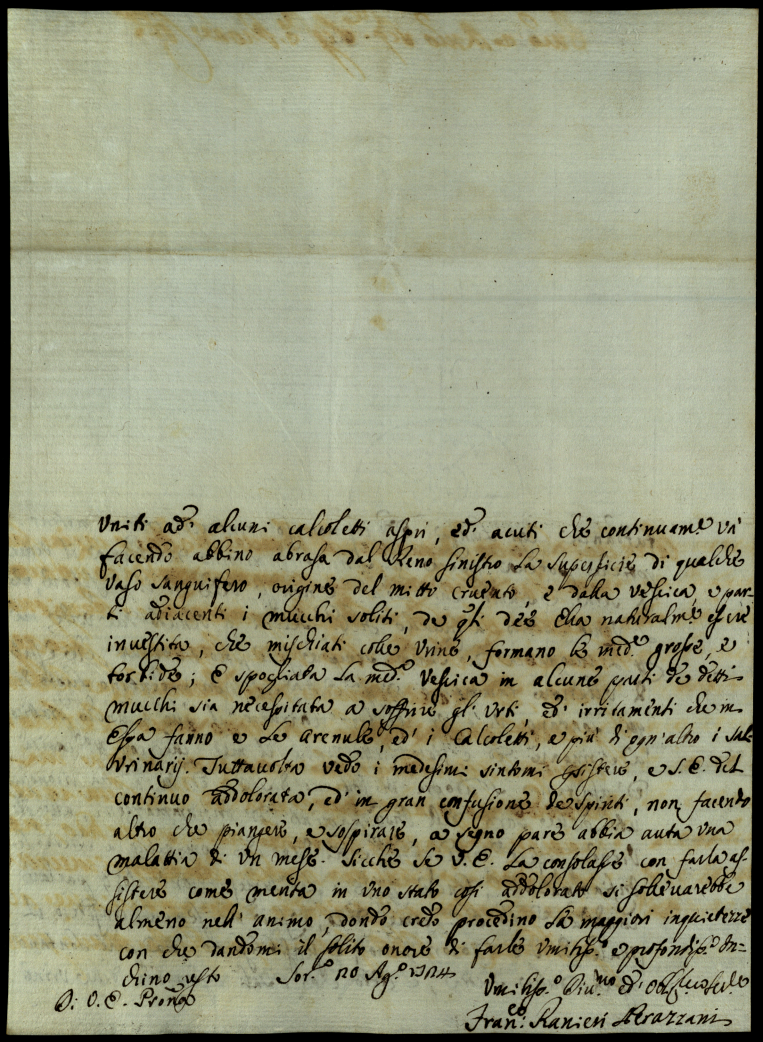 Uniti ad' alcuni calcoletti aspri, ed' acuti che continuam.e và
facendo abbino abrasa dal Reno sinistro la superficie di qualche
vaso sanguifero, origine del mitto cruento, e dalla vessica, e par-
ti adiacenti i mucchi soliti, de q.li dee Ella naturalm.e essere
investita, che mischiati colle Urine, formano le med.e grosse, e
torbide; e spogliata la med.a Vessica in alcune parti de detti
mucchi sia necessitata a soffrire gl' Urti, ed' irritamenti che in
Essa fanno e le arenule, ed' i Calcoletti, e più d'ogn'altro i sali
Urinarij. Tuttavolta vedo i medesimi sintomi esistere, e S. E. del
continuo addolorata, ed' in gran confusione de spiriti, non facendo
altro che piangere, e sospirare, a segno pare abbia auta una
malattia di Un mese. Sicche se V. E. la consolasse con farla as-
sistere come merita in uno stato così addolorato si solleverebbe
almeno nell' animo, donde credo procedino le maggiori inquietezze
con che dandomi il solito onore di farle Umiliss.o e profondiss.o In-
chino resto
Di V. E. Pron̄e
Umiliss.o Div.mo ed'
Fran.co Ranieri